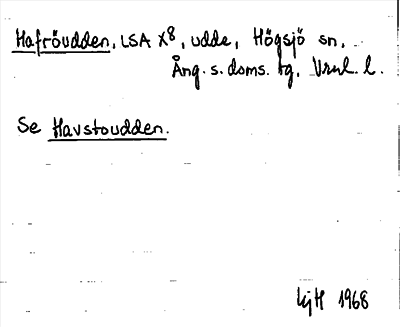 Hafröudden, LSA X8, udde, Högsjö sn,
Ång. s. doms. tg, Vrnl. l.
Se Havstoudden.
LjH 1968